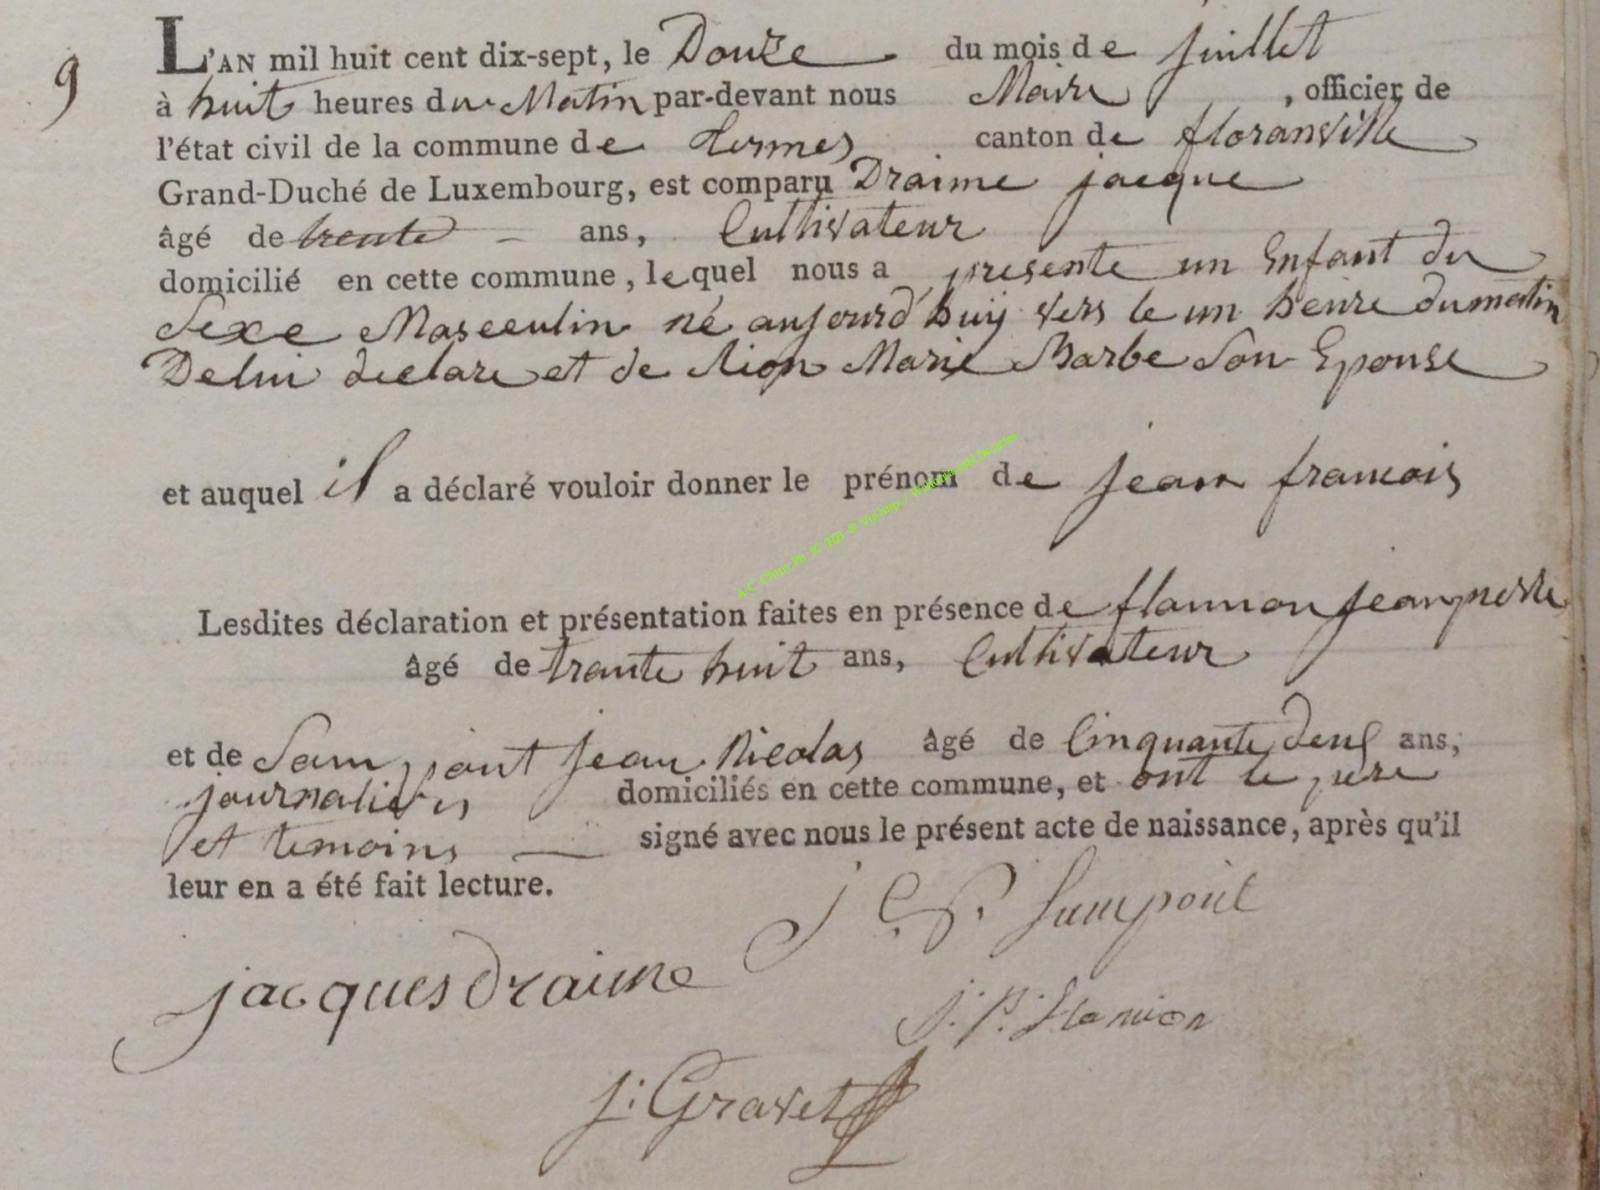 9
L'AN mil huit cent dix-sept, le Douze du mois de juillet
à huit heures du Matin par-devant nous Maire , officier de
l'état civil de la commune de termes canton de floranville
Grand-Duché de Luxembourg, est comparu Draime jacque
âgé de trente ans, Cultivateur
domicilié en cette commune, lequel nous a presente un Enfant du
Sexe Masceulin né aujourd'huy vers le un heure du matin
Delui declare et de Marie Barbe Son Epouse
et auquel il a déclaré vouloir donner le prénom de jean francois
Lesdites déclaration et présentation faites en présence de jean
âgé de trante huit ans, Cultivateur
et de Sampont jean Nicolas âgé de Cinquante deux ans,
journaliers domiciliés en cette commune, et ont le pere
et temoins signé avec nous le présent acte de naissance, après qu'il
leur en a été fait lecture.
Sampont
jacques Draime
j: p:
j: Gravet